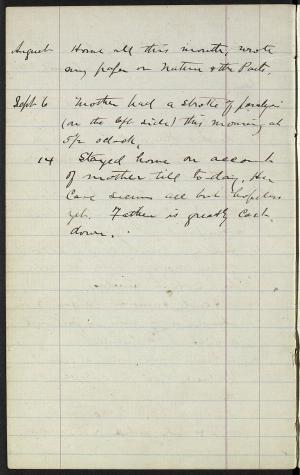 August Home all this month, wrote
my paper on Nature & the Poets.
Sept 6 Mother had a stroke of paralysis
(on the left side) this morning at
5½ oclock.
14 Stayed home on account
of mother till to-day, Her
Case seems all but hopeless
yet. Father is greatly Cast
down.